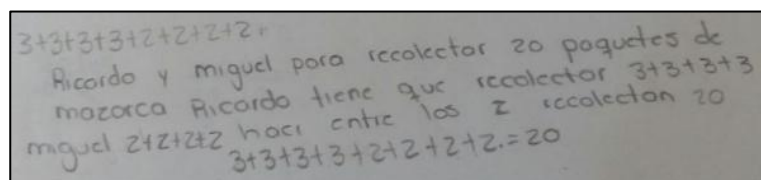 3+3+3+3+2+2+2+2.
Ricardo y miguel para recolectar 20 paquetes de
mazorca Ricardo tiene que recolector 3+3+3+3
miguel 2+2+2+2 haci entre los 2 recolectan 20
3+3+3+3+2+2+2+2.=20